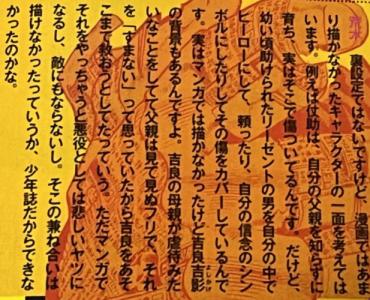 荒木
裏設定ではないですけど、漫画ではあま
り描かなかったキャラクターの一面を考えては
います。例えば仗助は、自分の父親を知らずに
育ち、実はそこで傷ついてるんです。だけど、
幼い頃助けられたリーゼントの男を自分の中で
ヒーローにして、頼ったり、自分の信念のシン
ボルにしたりしてその傷をカバーしているんで
す。実はマンガでは描かなかったけど吉良吉影
の背景もあるんですよ。吉良の母親が虐待みた
いなことをしてて父親は見て見ぬフリで、それ
を「すまない」って思っていたから吉良をあそ
こまで救おうとしてたっていう。ただマンガで
それをやっちゃうと悪役としては悲しいヤツに
なるし、敵にもならないし。そこの兼ね合いは
描けなかったっていうか、少年誌だからできな
かったのかな。